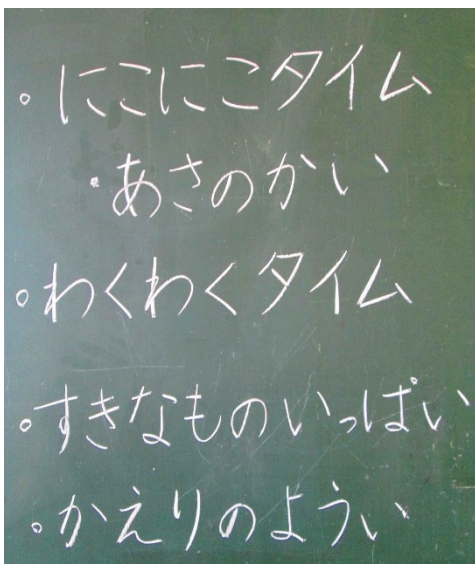 ・にこにこタイム
・あさのかい
・わくわくタイム
・すきなものいっぱい
・かえりのようい